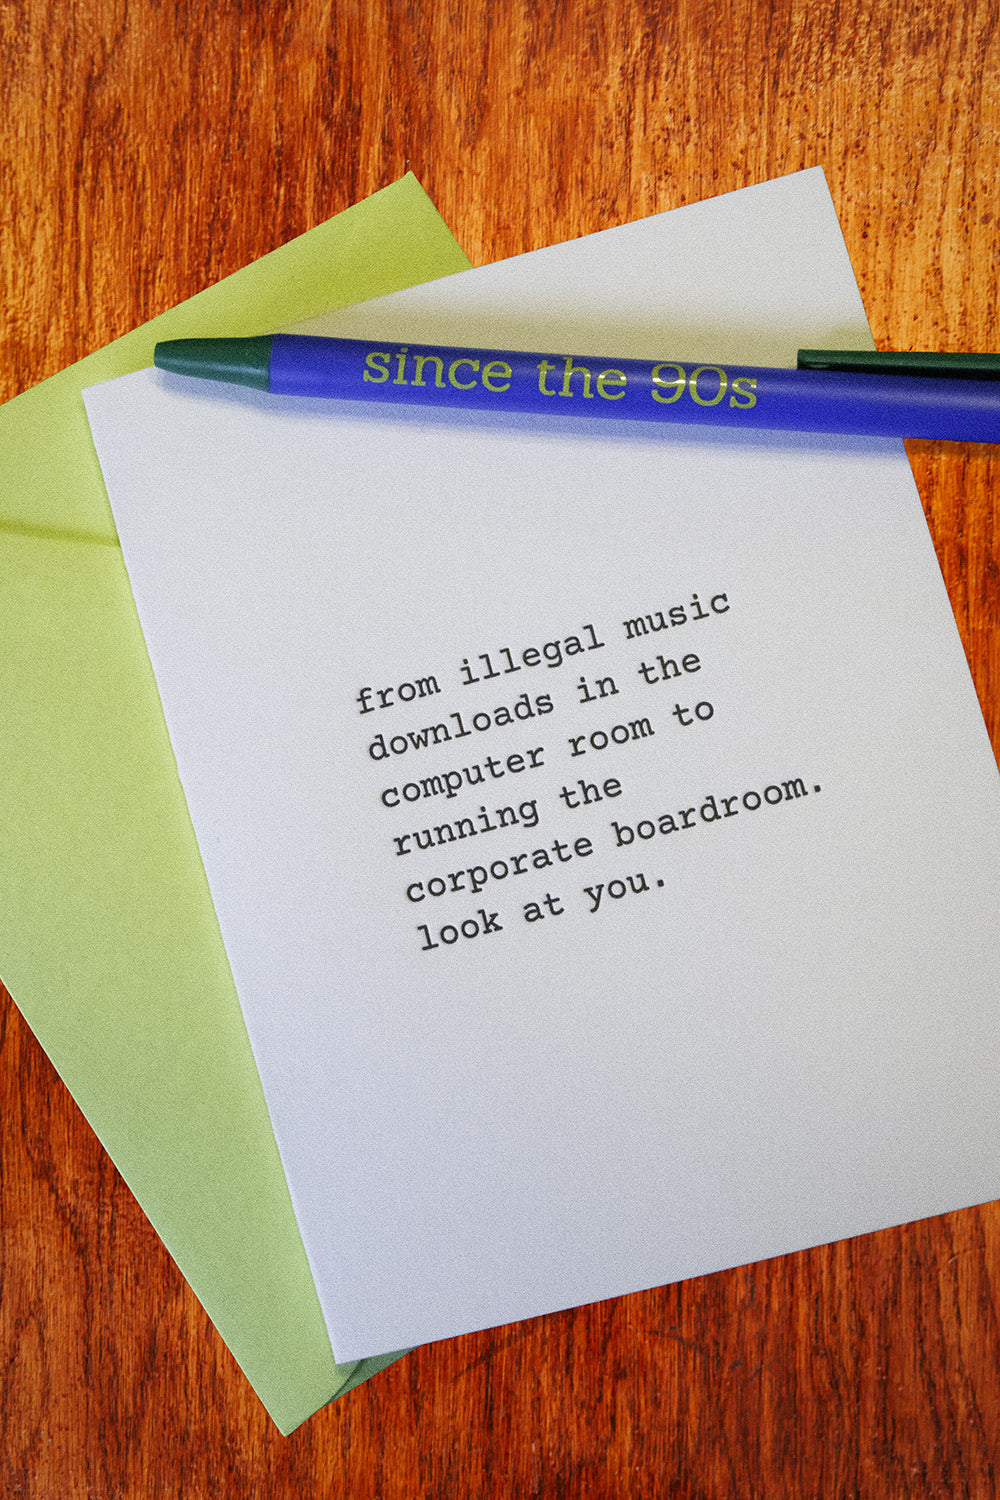 since the 90s
from illegal music
downloads in the
computer room to
running the
corporate boardroom.
look at you.